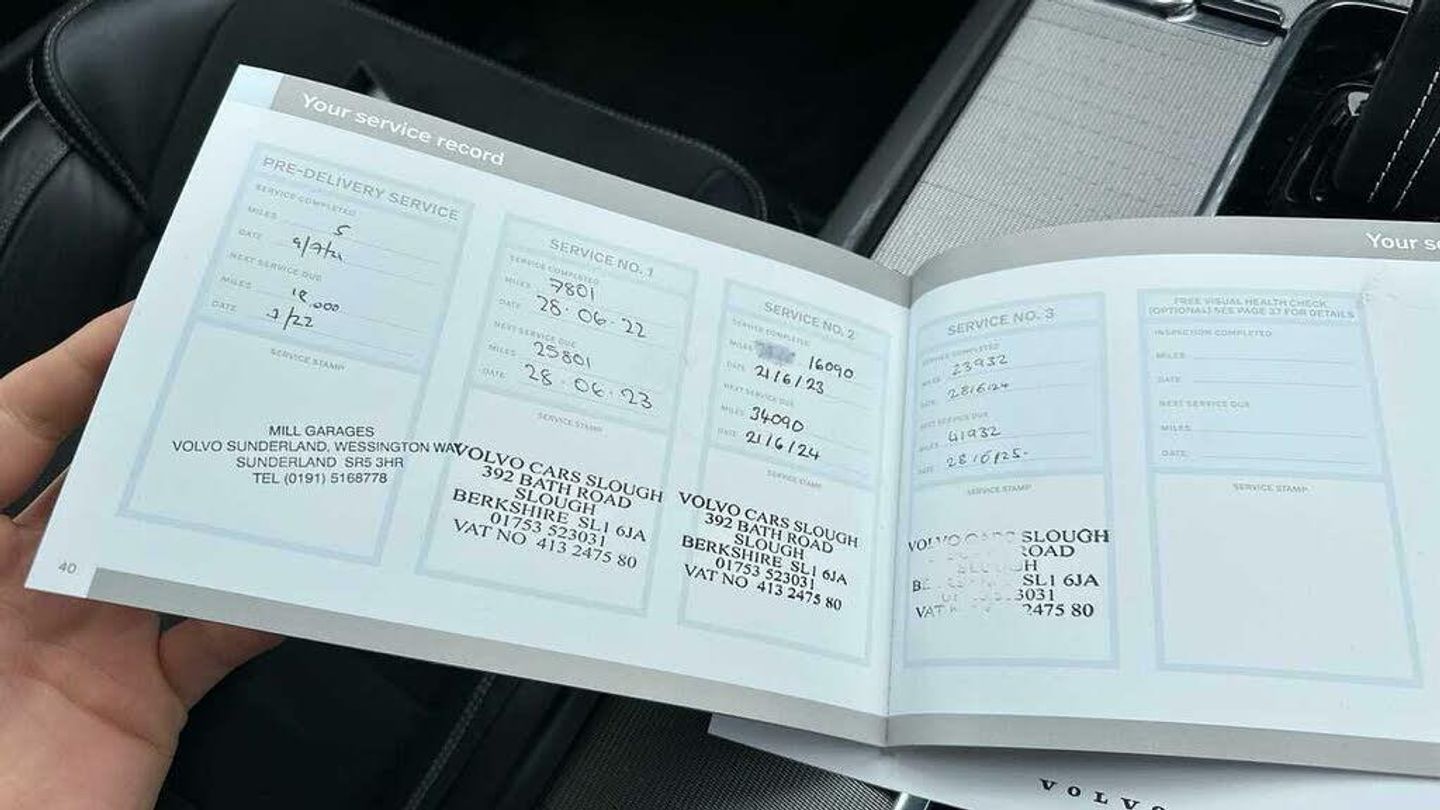 Your service record
PRE-DELIVERY SERVICE
SERVICE COMPLETED
MILES 5
DATE 9/7/21
NEXT SERVICE DUE
MILES 18,000
DATE 7/22
SERVICE STAMP
MILL GARAGES
VOLVO SUNDERLAND, WESSINGTON WAY
SUNDERLAND SR5 3HR
TEL (0191) 5168778
40
SERVICE NO. 1
SERVICE COMPLETED
MILES 7801
DATE 28.06.22
NEXT SERVICE DUE
MILES 25801
DATE 28.06.23
SERVICE STAMP
VOLVO CARS SLOUGH
392 BATH ROAD
SLOUGH
BERKSHIRE SL1 6JA
01753 523031
VAT NO 413 2475 80
SERVICE NO. 2
SERVICE COMPLETED
MILES 16090
DATE 21/6/23
NEXT SERVICE DUE
MILES 34090
DATE 21/6/24
SERVICE STAMP
VOLVO CARS SLOUGH
392 BATH ROAD
SLOUGH
BERKSHIRE SL1 6JA
01753 523031
VAT NO 413 2475 80
Your
SERVICE NO. 3
SERVICE COMPLETED
MILES 23932
DATE 28/6/24
NEXT SERVICE DUE
MILES 41932
DATE 28/6/25
SERVICE STAMP
VOLVO CARS SLOUGH
ROAD
SL1 6JA
VAT 2475 80
FREE VISUAL HEALTH CHECK
(OPTIONAL) SEE PAGE 37 FOR DETAILS
INSPECTION COMPLETED
MILES
DATE
NEXT SERVICE DUE
MILES
DATE
SERVICE STAMP
VOLVO